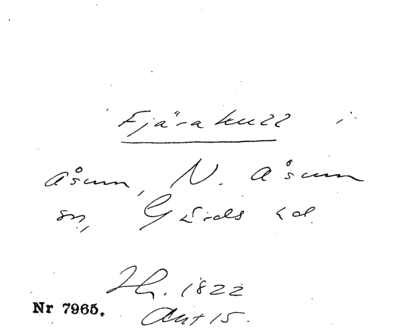 Fjärakull i
Åsum, N. Åsum
sn, Gärds hd.
Hg. 1822
Akt 15.
Nr 7965.